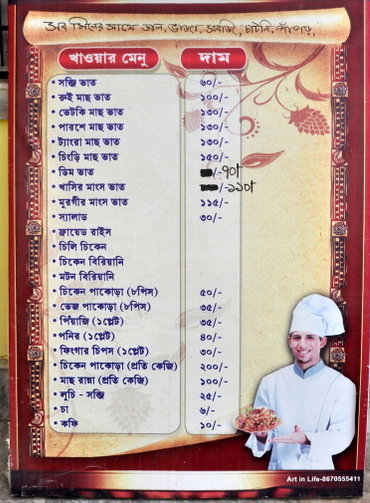 সব মিলের সাথে ডাল, ভাজা, সবজি, চাটনি, পাঁপড়,
খাওয়ার মেনু দাম
• সব্জি ভাত ৬০/-
• রুই মাছ ভাত ১০০/-
• ভেটকি মাছ ভাত ১৩০/-
• পারশে মাছ ভাত ১৩০/-
• ট্যাংরা মাছ ভাত ১৩০/-
• চিংড়ি মাছ ভাত ১৫০/-
• ডিম ভাত /-৭০৲
• খাসির মাংস ভাত /-১১০৲
• মুরগীর মাংস ভাত ১১৫/-
• স্যালাড ৩০/-
• ফ্রায়েড রাইস
• চিলি চিকেন
• চিকেন বিরিয়ানি
• মটন বিরিয়ানি
• চিকেন পাকোড়া (৮পিস) ৫০/-
• ভেজ পাকোড়া (৮পিস) ৩৫/-
• পিঁয়াজি (১প্লেট) ৩৫/-
• পনির (১প্লেট) ৪০/-
• ফিংগার চিপস (১প্লেট) ৩০/-
• চিকেন পাকোড়া (প্রতি কেজি) ২০০/-
• মাছ রান্না (প্রতি কেজি) ১০০/-
• লুচি - সব্জি ২৫/-
• চা ৬/-
• কফি ১০/-
Art in Life-8670555411